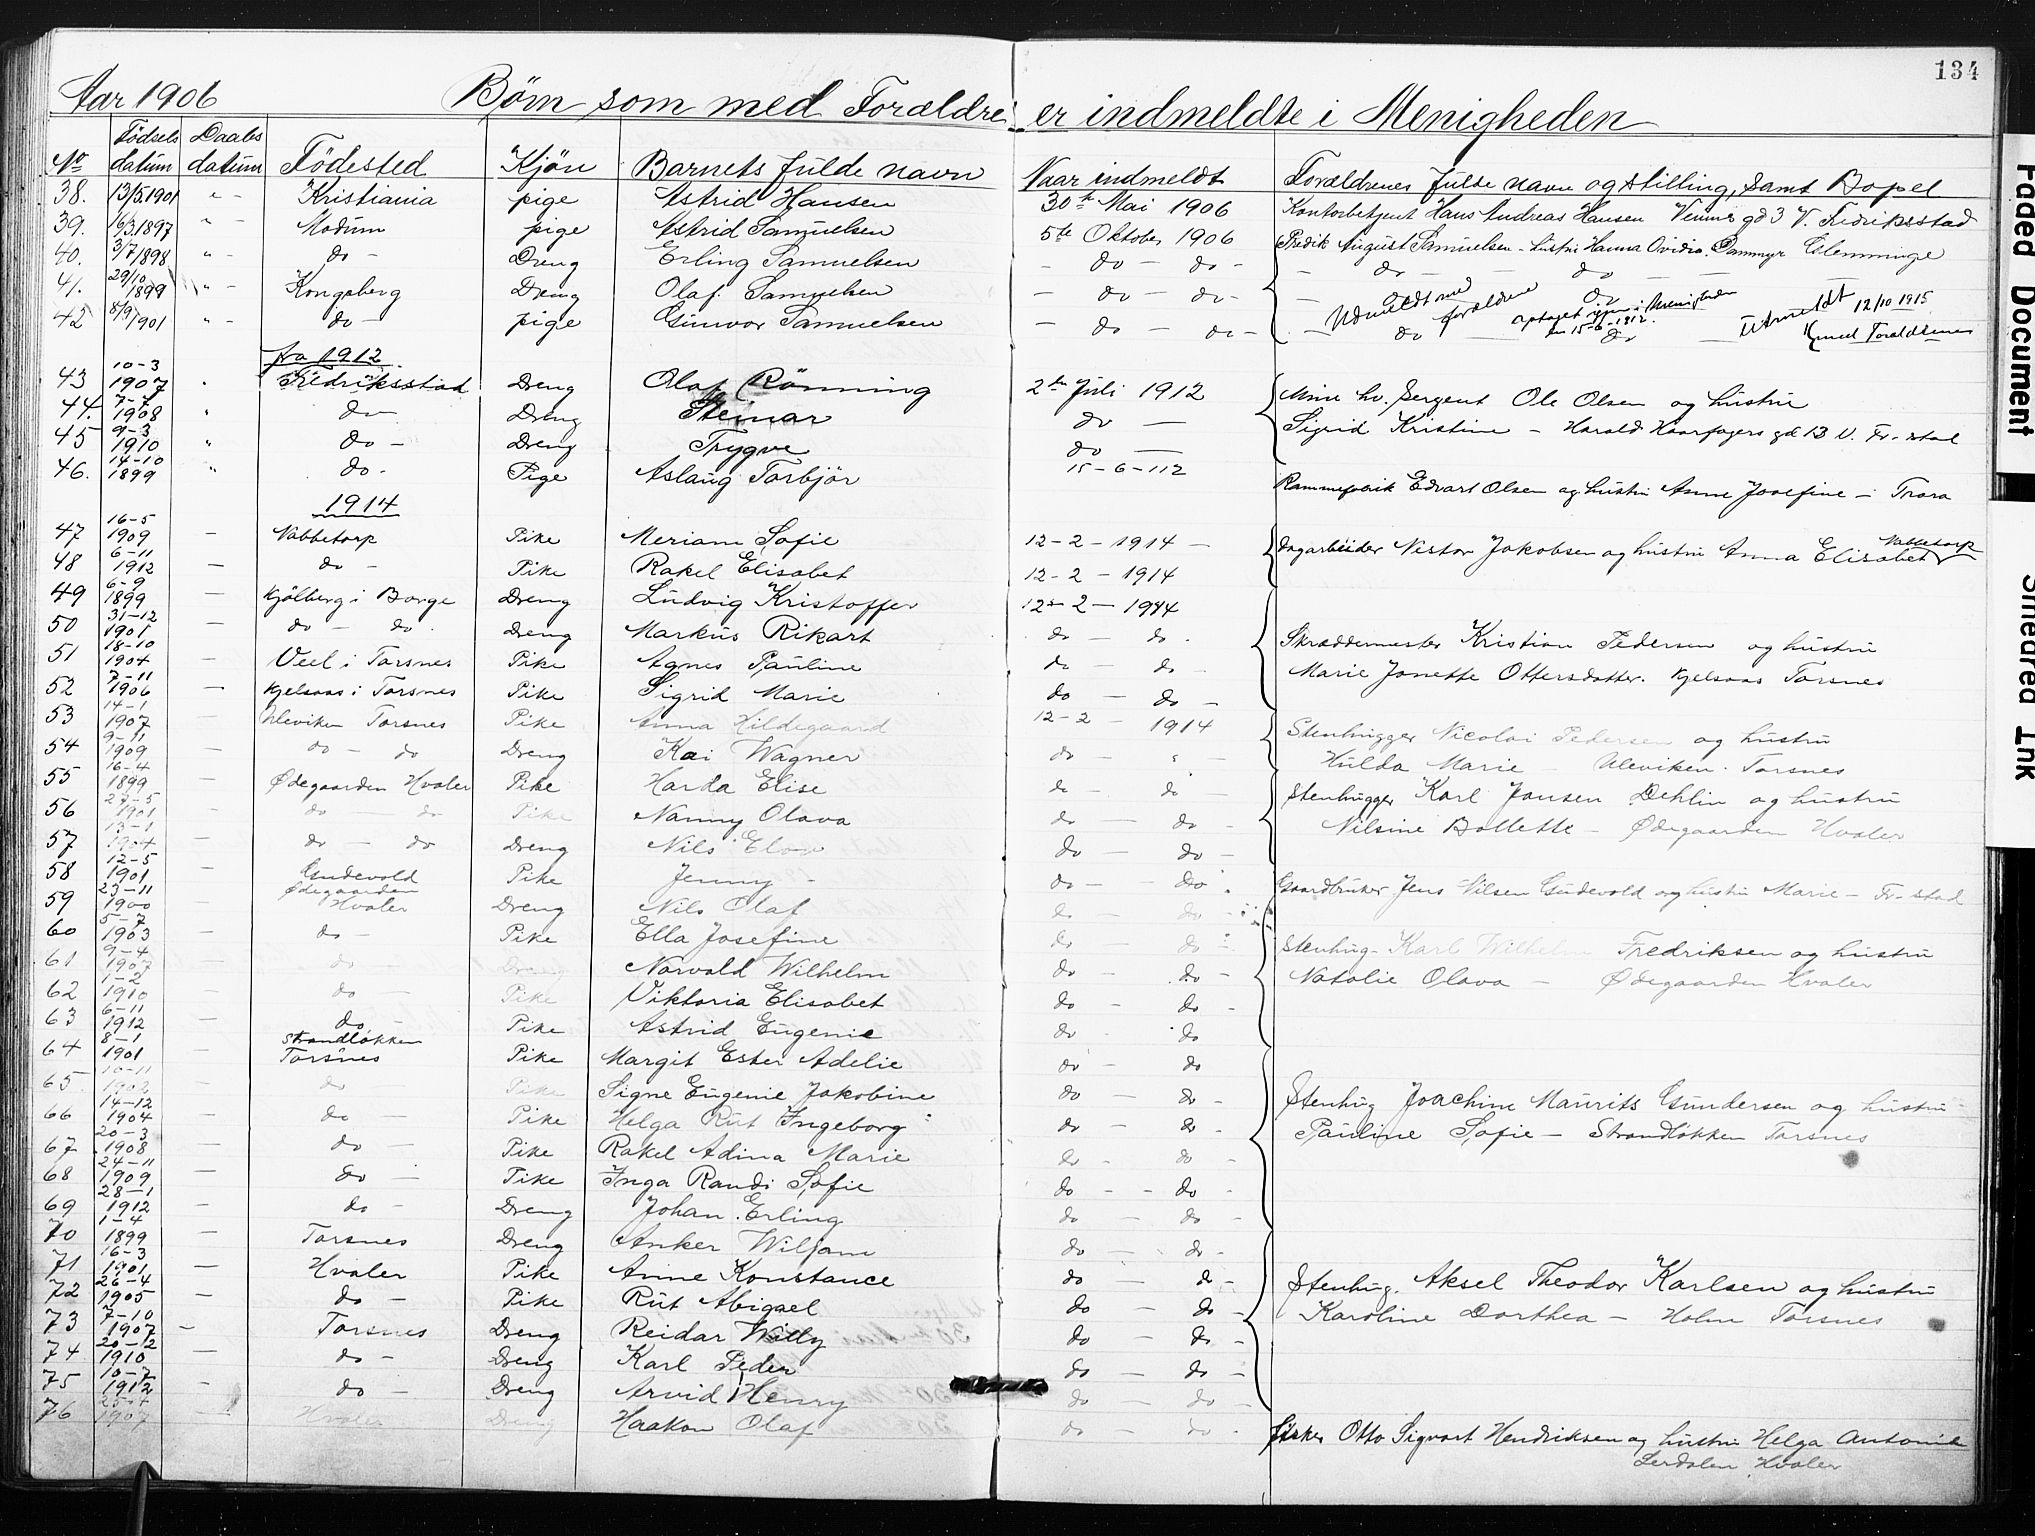 134
Aar 1906 Børn som med Forældre er indmeldte i Menigheden
No Födsels datum Daabs datum Födested Kjön Barnets fulde navn Naar indmeldt Forældrenes fulde navn og stilling, samt Bopel
38. 13/5.1901 " - Kristiania pige Astrid Hansen 30te Mai 1906 Kontorbetjent Hans Andreas Hansen gd 3 V. Fredriksstad
39. 16/3.1897 " - Modum pige Astrid Samuelsen 5te Oktober 1906 Fredik August Samuelsen - hustru Hanna Ovidia. Dammyr Glemminge
40. 3/7 1898 " - do - Dreng Erling Samuelsen - do - do - - do - - do - -
41. 29/10 1899 " - Kongsberg Dreng Olaf Samuelsen - do - do - - do - do -
Udmeldt med foreldrene optaget igjen i Menigheden den 15-6-1912. Utmeldt 12/10 1915 med Foraldrenes
42 8/9 1901 " - do - pige Gunvor Samuelsen - do - do - - do - do -
fra 1912
43 10-3 1907 " Fredriksstad Dreng Olaf Rönning 2den Juli 1912 Mine hv. Sergent Ole Olsen og hustru
44. 7-7 1908 " do - Dreng Steinar do - Sigrid Kristine - Harald Haarfagers gd 13 V. Fr. stad
45 9-3 1910 " do - Dreng Trygve do -
46. 14-10 1899 " do - Pige Aslaug Torbjör 15-6-112 Rammefabrik Edvart Olsen og hustru Anne Josefine - Trara
1914
47 16-5 1909 - Nabbetorp Pike Meriam Sofie 12-2-1914 - Dagarbeider Nestor Jakobsen og hustru Anna Elisabet Nabbetorp
48 6-11 1912 - do - Pike Rakel Elisabet 12-2-1914
49 6-9 1899 - Kjölberg i Borge Dreng Ludvig Kristoffer 12-2-1914
50 31-12 1901 - do - do Dreng Markus Rikart do - do - Skræddermester Kristian Pedersen og hustru
51 18-10 1904 - Veel i Torsnes Pike Agnes Pauline do - do - Marie Jonette Ottersdatter. Kjelsaas Torsnes
52 7-11 1906 - Kjelsaas i Torsnes Pike Sigrid Marie do - do -
53 14-1 1907 - Uleviken Torsnes Pike Anna Hildegaard 12-2-1914 Stenhugger Nicolai Pedersen og hustru
54 9-11 1909 - do - do Dreng Kai Wagner do - " - Hulda Marie - Uleviken. Torsnes
55 16-4 1899 - Ødegaarden Hvaler Pike Harda Elise do - do - Stenhugger Karl Jansen Dehlin og hustru
56 27-5 1901 - do - do Pike Nanny Olava do - do - Nilsine Bollette - Ødegaarden Hvaler
57 13-1 1904 - do - do Dreng Nils do - do -
58 12-5 1901 - Gudevold Pike Jenny - do - do. Gaardbruker Jens Nilsen Gudevold og hustru Marie - Fr-stad
59 23-11 1900 - Ødegaarden Hvaler Dreng Nils Olaf do - do -
60 5-7 1903 - do - Pike Ella Josefine do - do - Stenhug- Karl Wilhelm Fredriksen og hustru
61 9-4 1907 - do Dreng Norvald Wilhelm do - do - Natalie Olava - Ødegaarden Hvaler
62 1-2 1910 - do - Pike Viktoria Elisabet do - do
63 6-11 1912 - do - Pike Astrid Eugenie do - do
64 8-1 1901 - Strandløkken Torsnes Pike Margit Ester Adelie do - do
65 10-11 1902 - do Pike Signe Eugenie Jakobine do - do - Stenhug Joachim Maurits Gundersen og hustru
66 14-12 1904 - do - Pike Helga Rut Ingeborg do - do - Pauline Sofie - Strandløkken Torsnes
67 20-3 1908 - do - Pike Rakel Adina Marie do - do -
68 24-11 1909 - do - Pike Inga Randi Sofie do - - do -
69 28-1 1912 - do - Dreng Johan. Erling do - do -
70 1-4 1899 - Torsnes Dreng Anker Wiljam do - do -
71 16-3 1901 - Hvaler Pike Anne Konstance do - do - Stenhug. Aksel Theodor Karlsen og hustru
72 26-4 1905 - do - Pike Rut Abigael do - do - Karoline Dorthea - Holm Torsnes
73 7-10 1907 - Torsnes Dreng Reidar Willy do - do -
74 20-12 1910 - do - Dreng Karl Peder do - do -
75 10-7 1912 - do - Dreng Arvid Henry do - do -
76 25-4 1907 - Hvaler Dreng Haakon Olaf do - do - Fisker Otto Sigvart Hendriksen og hustru Helga Antonie
Lerdalen Hvaler
Faded Document
Smedred Ink